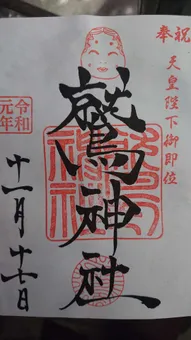 奉祝
天皇陛下御即位
鷲神社
令和
元年
十一月十七日